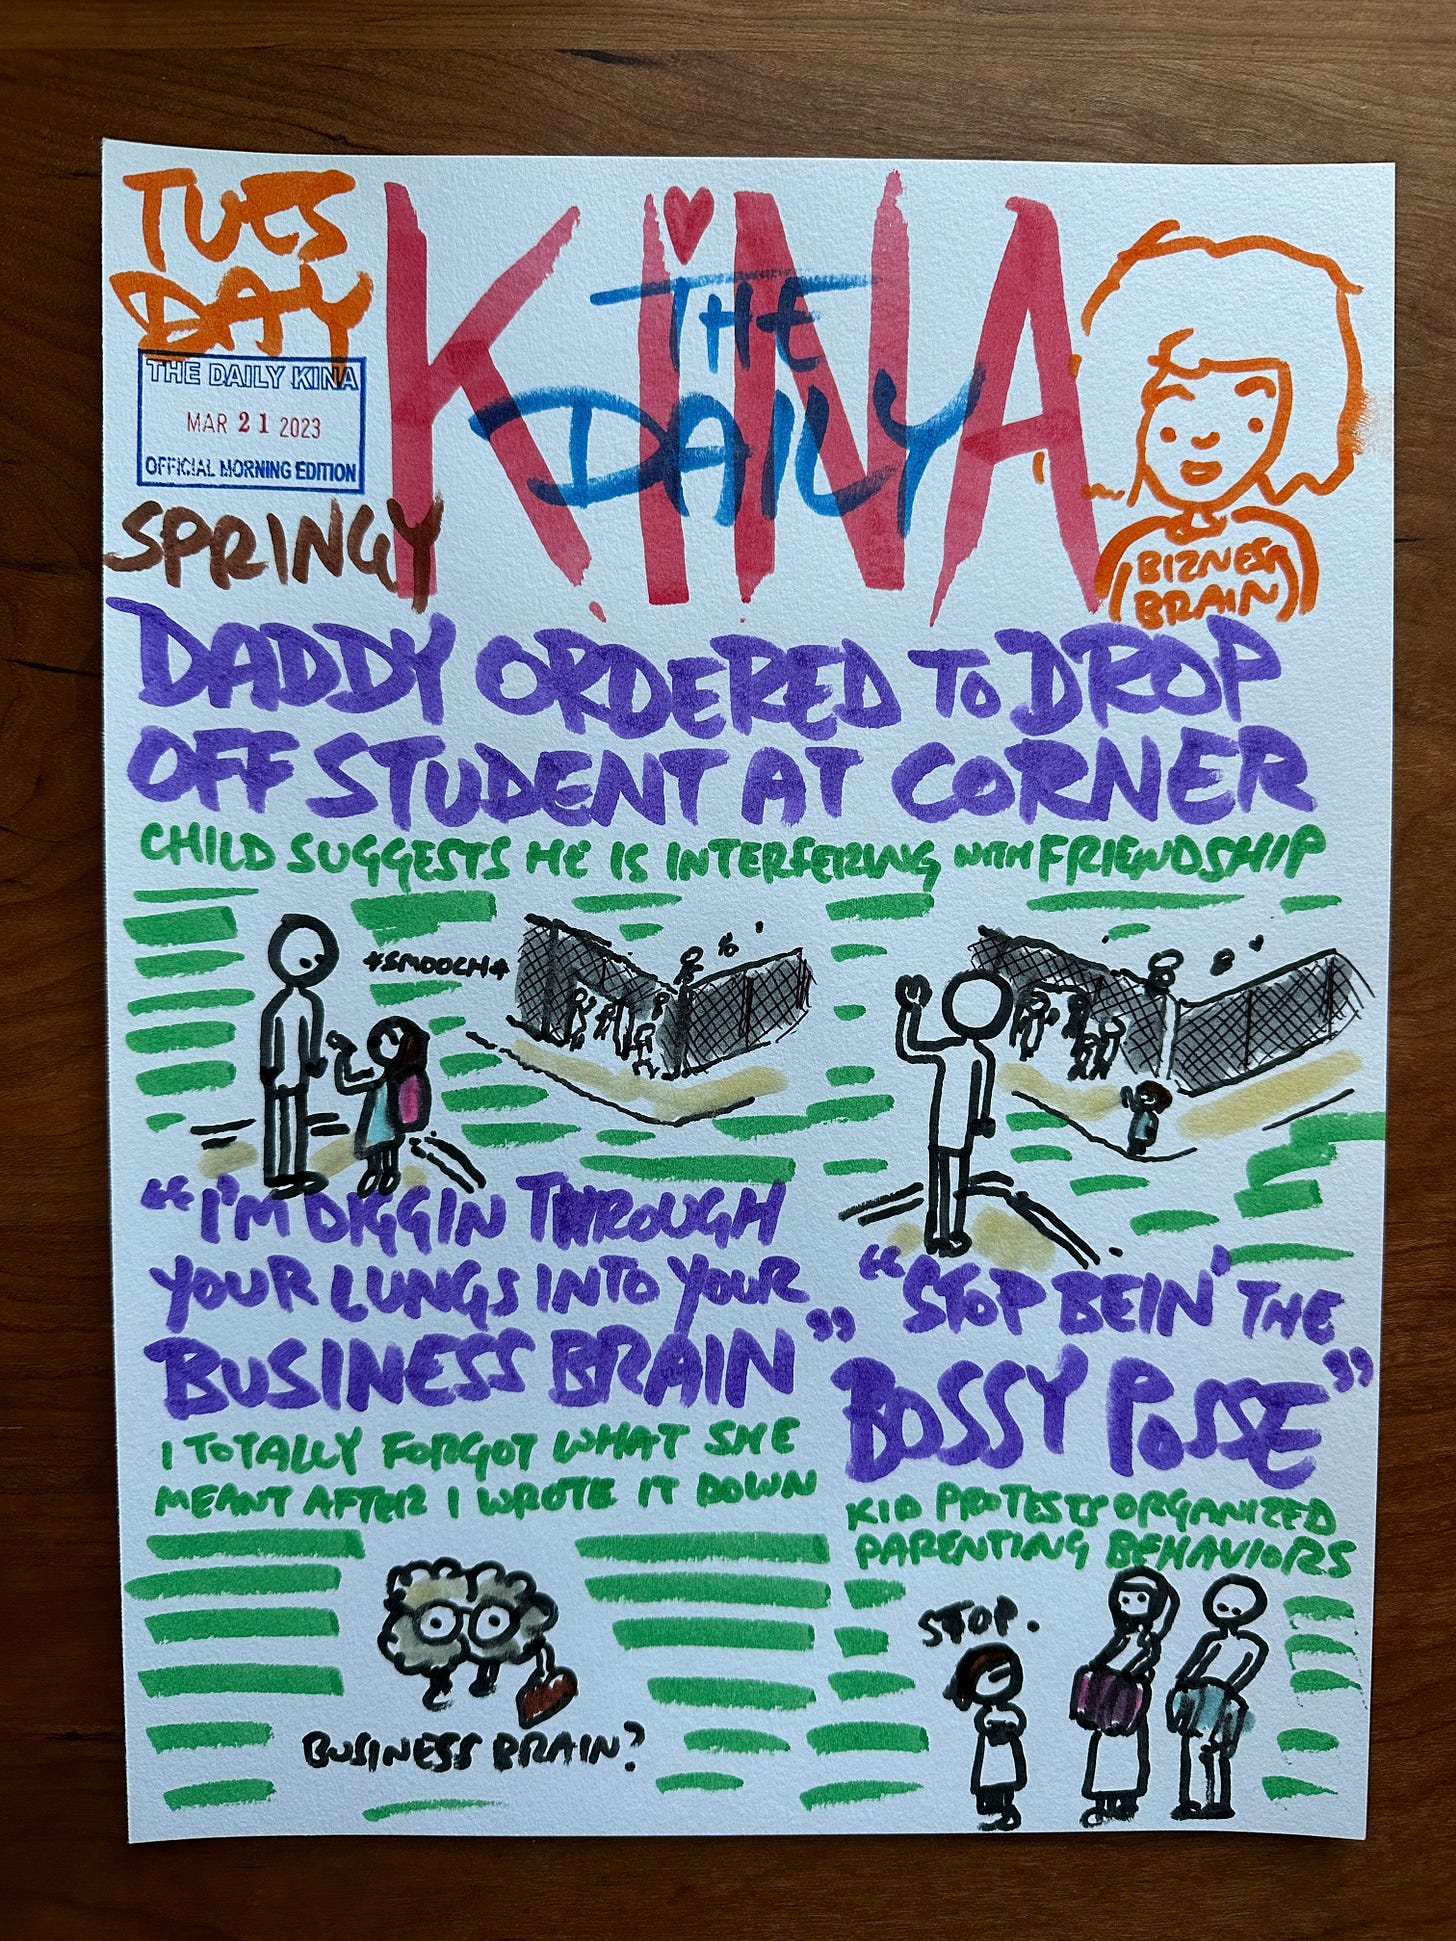 TUES
DAY
THE DAILY KINA
MAR 21 2023
OFFICIAL MORNING EDITION
SPRINGY
KINA
THE
DAILY
BIZNESS
BRAIN
DADDY ORDERED TO DROP
OFF STUDENT AT CORNER
CHILD SUGGESTS HE IS INTERFERING WITH FRIENDSHIP
*SMOOCH*
"I'M DIGGIN THROUGH
YOUR LUNGS INTO YOUR
BUSINESS BRAIN"
I TOTALLY FORGOT WHAT SHE
MEANT AFTER I WROTE IT DOWN
BUSINESS BRAIN?
"STOP BEIN' THE
BOSSY POSSE"
KID PROTESTS ORGANIZED
PARENTING BEHAVIORS
STOP.